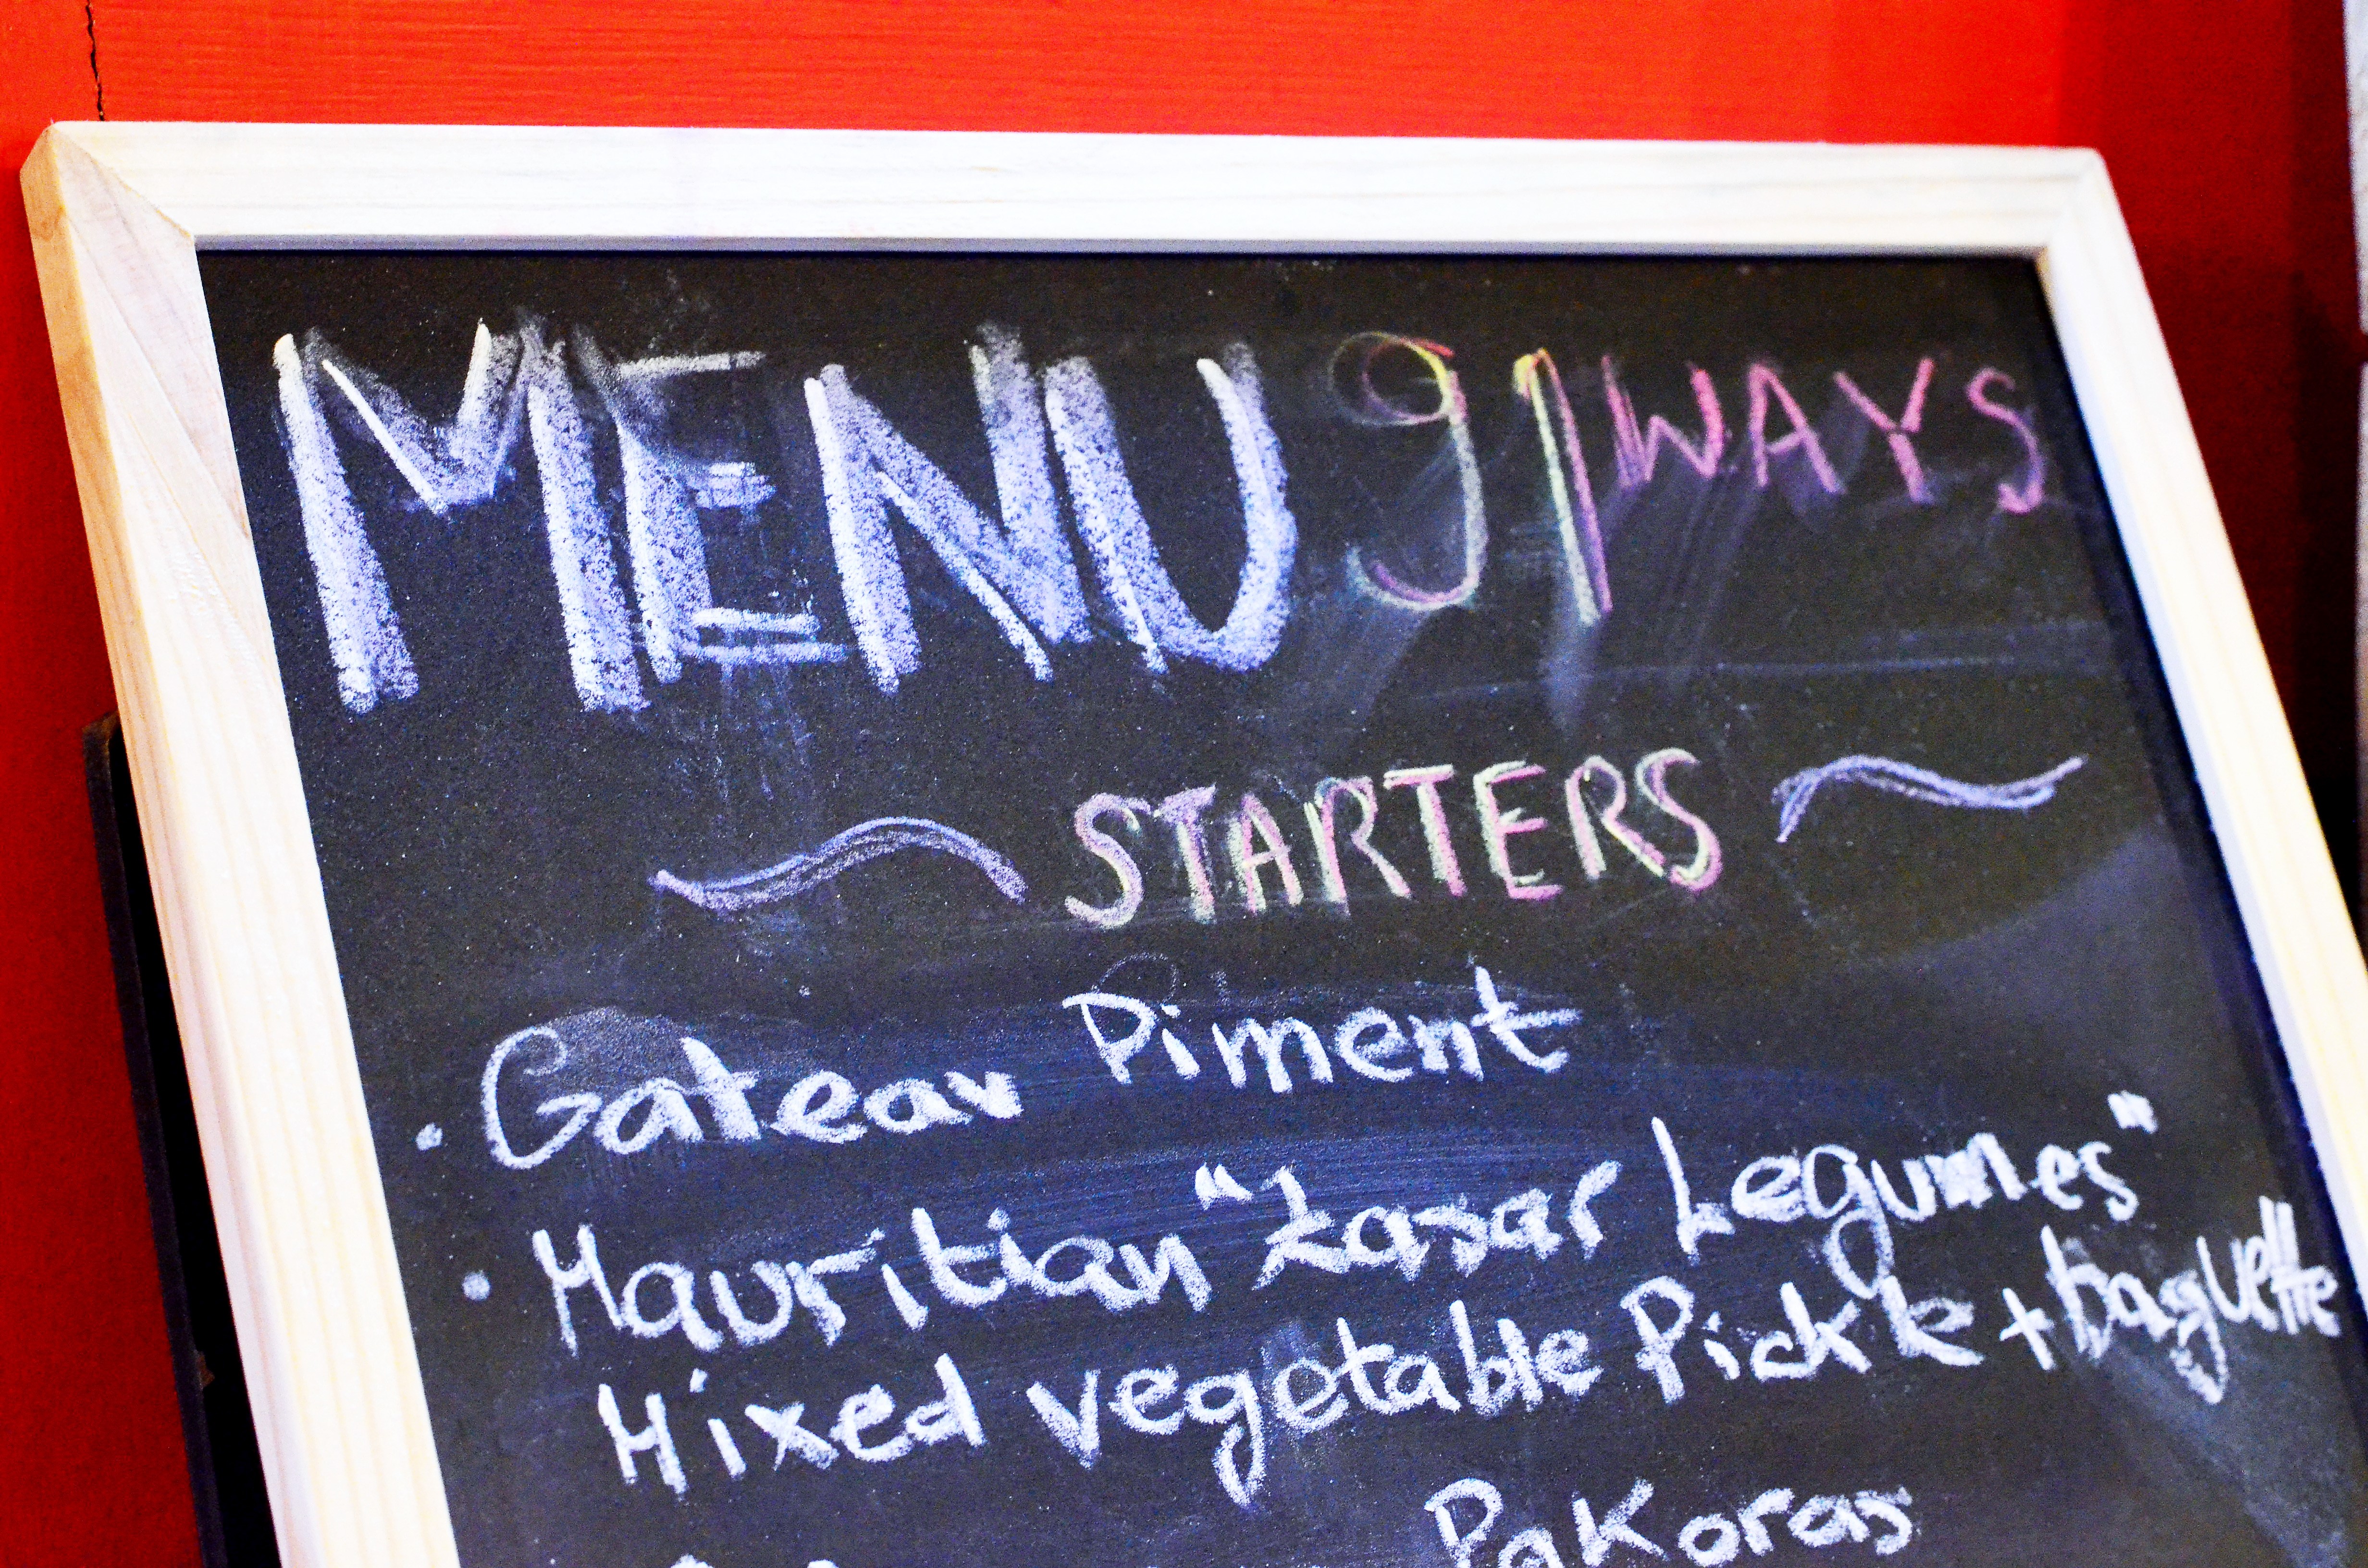 MENU 91 WAYS
STARTERS
· Gateau Piment
· Mauritian "Zasar Legumes"
Mixed vegetable Pickle + baguette
Pakoras